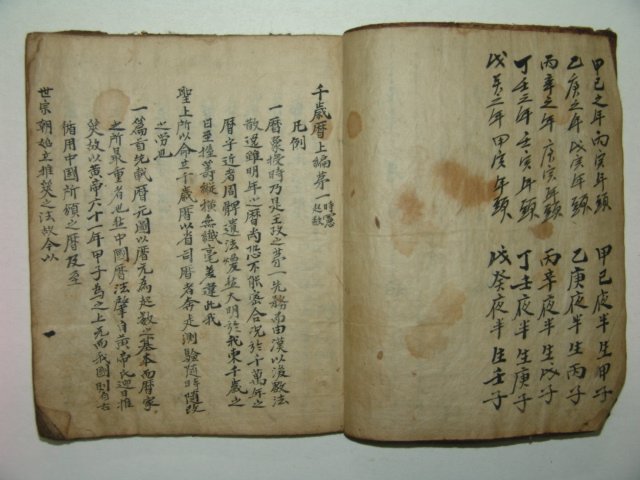 甲己之年丙寅年頭 甲己夜半生甲子
乙庚之年戊寅年頭 乙庚夜半生丙子
丙辛之年庚寅年頭 丙辛夜半生戊子
丁壬之年壬寅年頭 丁壬夜半生庚子
戊癸之年甲寅年頭 戊癸夜半生壬子
千歲曆上編第一 時憲起數
凡例
一曆象授時乃是王政之第一先務而由漢以後数法
散逸雖明年之曆尚恐不能密合況於千萬年之
曆乎近者周髀遺法煥然大明於我東千歲之
日至推籌縱橫無纖毫差謬此我
聖上所以命立千歲曆以省司曆者奔走測驗随時随改
之勞也
一篇首先載曆元國以曆元為起数之基本而曆家
之所最重者也盖中國曆法肇自黃帝氏迎日推
筴故以黃帝六十一年甲子為之上元而我國則自古
循用中國所頒之曆及至
世宗朝始立推筴之法故今以